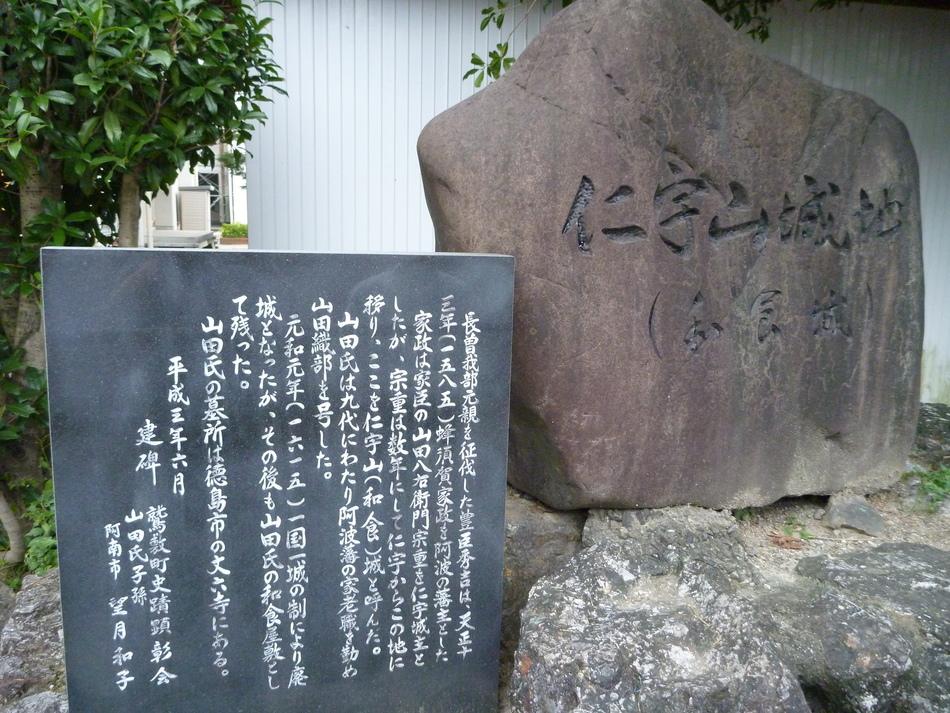 仁宇山城址
(和食城)
長曽我部元親を征伐した豊臣秀吉は、天正十
三年(一五八五)蜂須賀家政を阿波の藩主とした
家政は家臣の山田八右衛門宗重を仁宇城主と
したが、宗重は数年にして仁宇からこの地に
移り、ここを仁宇山(和食)城と呼んだ。
山田氏は九代にわたり阿波藩の家老職を勤め
山田織部を号した。
元和元年(一六一五)一国一城の制により廃
城となったが、その後も山田氏の和食屋敷とし
て残った。
山田氏の墓所は徳島市の丈六寺にある。
平成三年六月
建碑 鷲敷町史蹟顕彰会
山田氏子孫
阿南市 望月和子